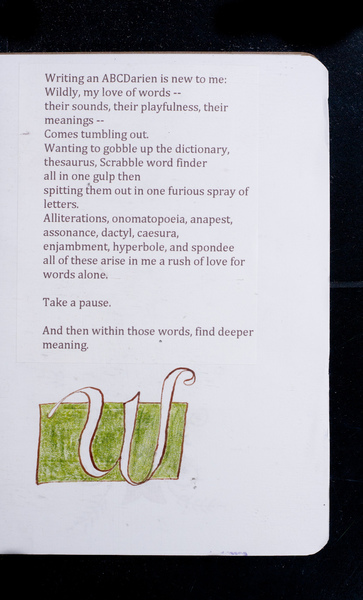 Writing an ABCDarien is new to me:
Wildly, my love of words --
their sounds, their playfulness, their
meanings --
Comes tumbling out.
Wanting to gobble up the dictionary,
thesaurus, Scrabble word finder
all in one gulp then
spitting them out in one furious spray of
letters.
Alliterations, onomatopoeia, anapest,
assonance, dactyl, caesura,
enjambment, hyperbole, and spondee
all of these arise in me a rush of love for
words alone.
Take a pause.
And then within those words, find deeper
meaning.
W